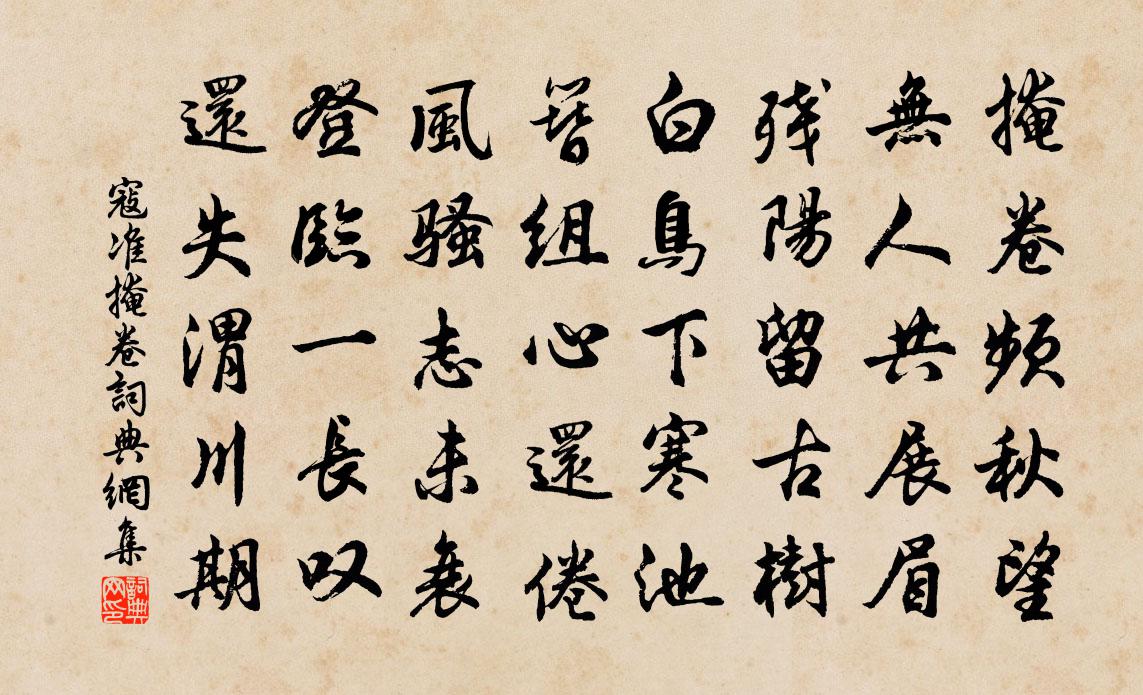 掩卷頻秋望
無人共展眉
残陽留古樹
白鳥下寒池
簪組心還倦
風騷志未衰
登臨一長叹
還失渭川期
寇准掩卷詞典網集
詞典网印